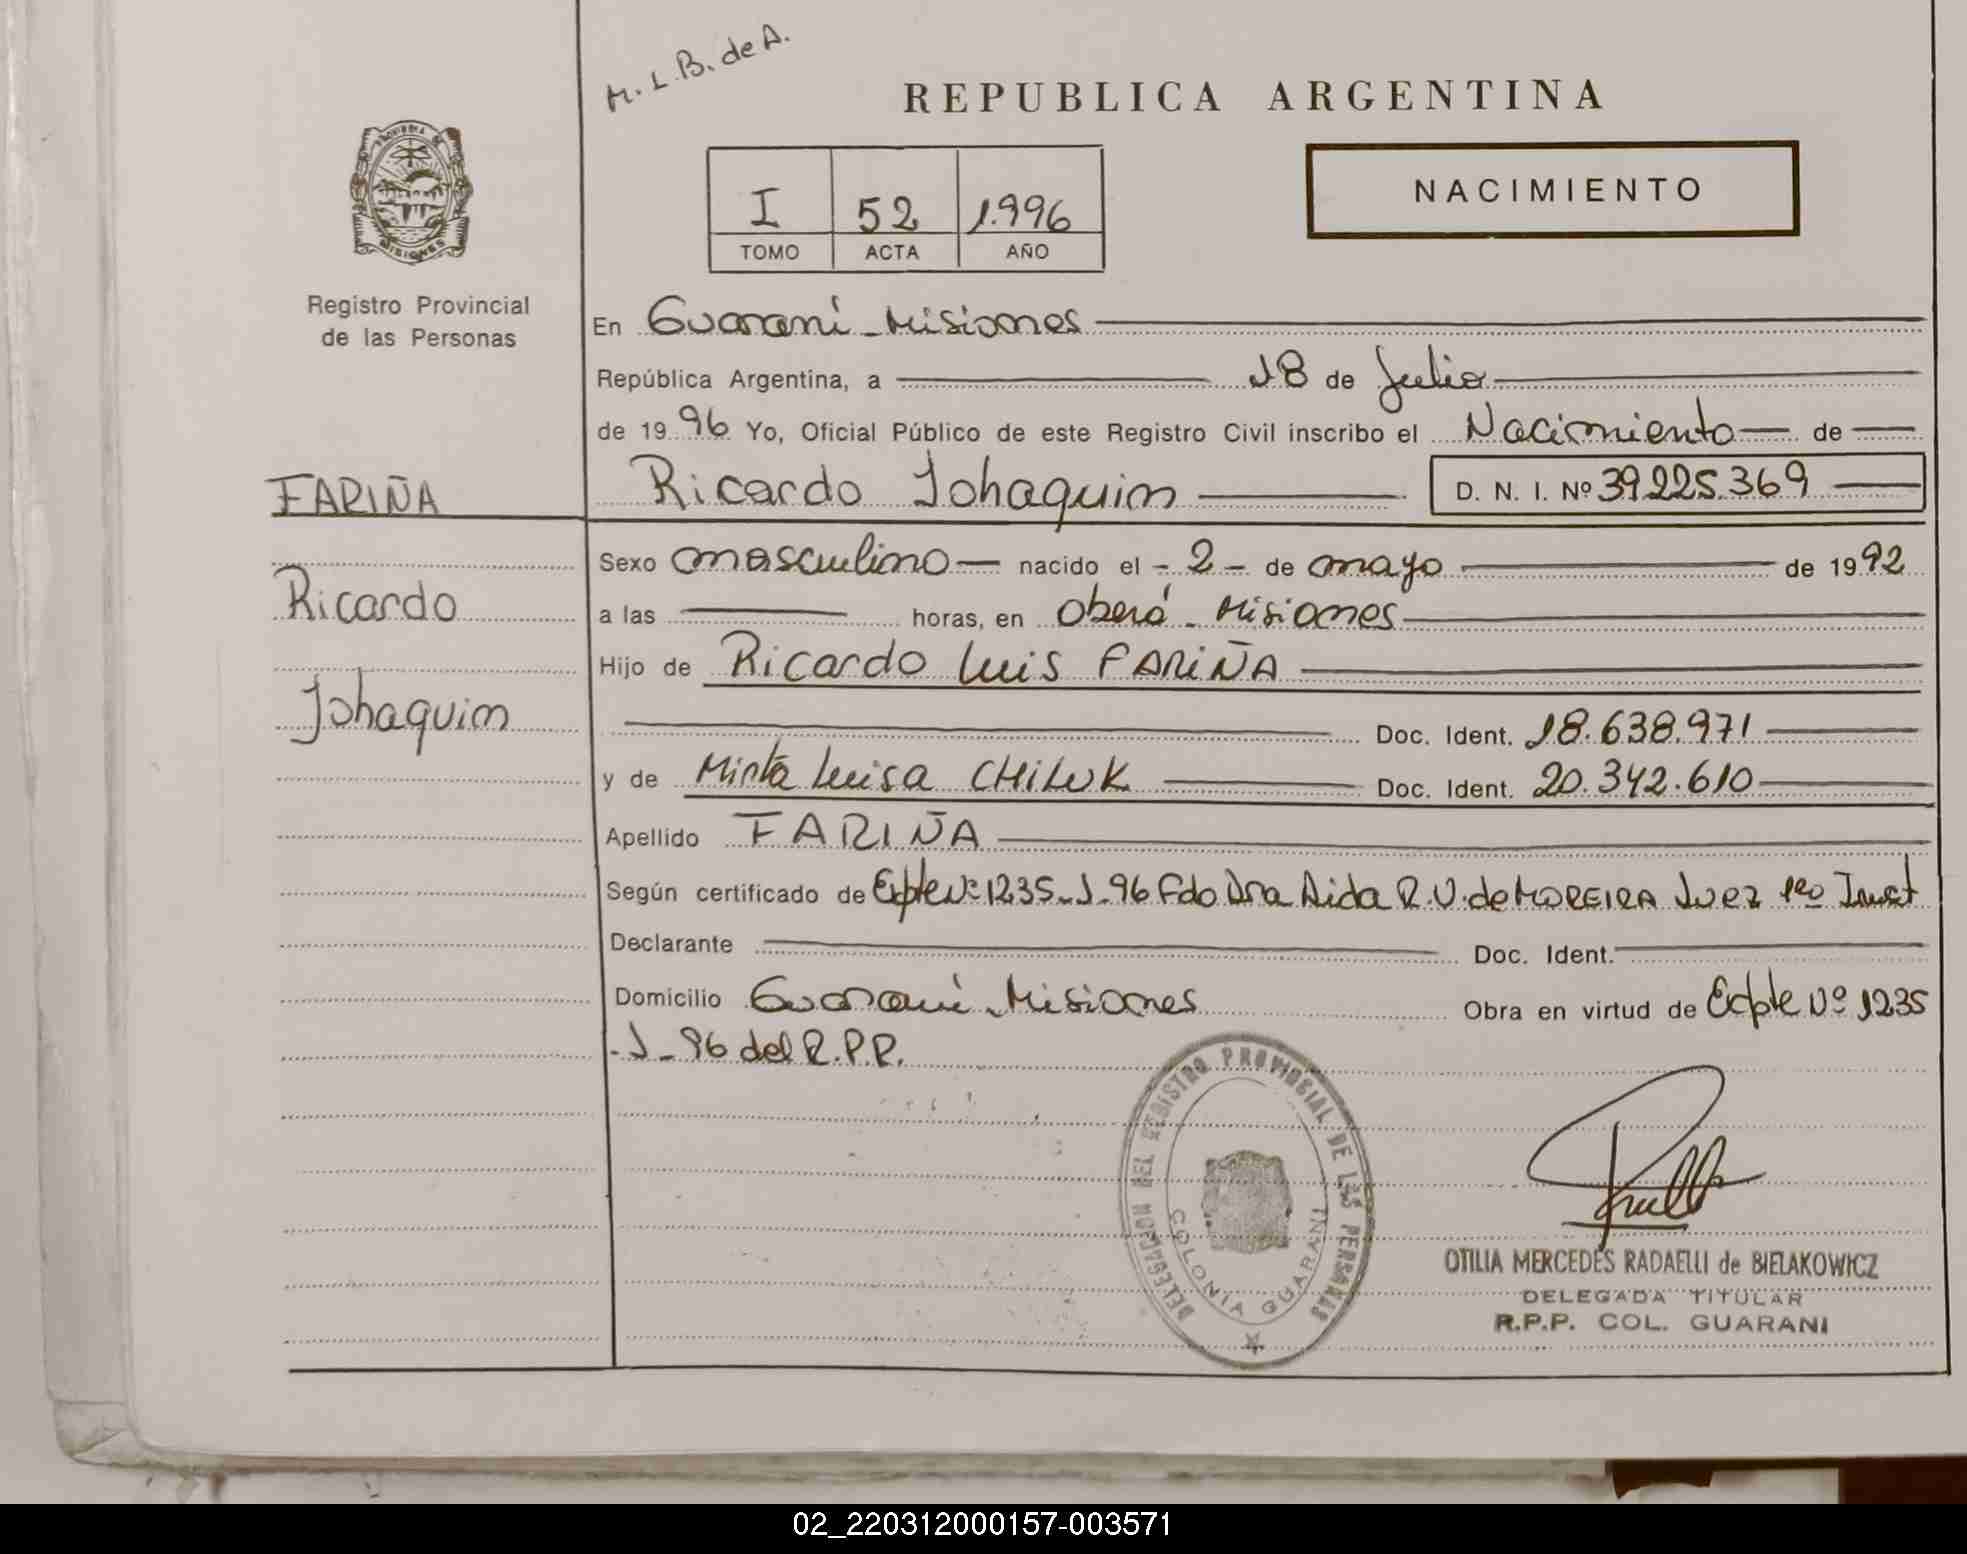 M. L. B. de A.
REPUBLICA ARGENTINA
PROVINCIA DE
MISIONES
Registro Provincial
de las Personas
I 52 1.996
TOMO ACTA AÑO
NACIMIENTO
En Guaraní - Misiones
República Argentina, a 18 de Julio
de 19 96 Yo, Oficial Público de este Registro Civil inscribo el Nacimiento de
FARIÑA
Ricardo Johaquim D. N. I. Nº 39.225.369
Sexo masculino nacido el - 2 - de mayo de 19 92
Ricardo
a las horas, en Oberá - Misiones
Hijo de Ricardo Luis FARIÑA
Johaquim
Doc. Ident. 18.638.971
y de Mirta Luisa CHILUK Doc. Ident. 20.342.610
Apellido FARIÑA
Según certificado de Expte Nº 1235-J-96 Fdo Dra Aida R.V. de MOREIRA Juez 1ro Inst
Declarante Doc. Ident.
Domicilio Guaraní - Misiones Obra en virtud de Expte Nº 1235
-J-96 del R.P.P.
DELEGACION DEL REGISTRO PROVINCIAL DE LAS PERSONAS
COLONIA GUARANI
OTILIA MERCEDES RADAELLI de BIELAKOWICZ
DELEGADA TITULAR
R.P.P. COL. GUARANI
02_220312000157-003571